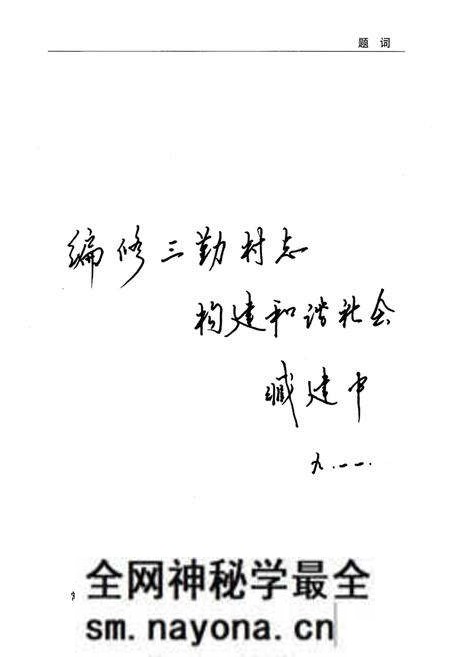 题 词
编修三勤村志
构建和谐社会
臧建中
九.一一.
全网神秘学最全
sm.nayona.cn